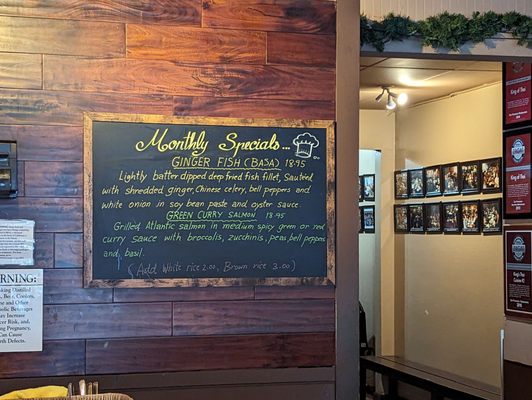 Monthly Specials...
GINGER FISH (BASA) 18.95
Lightly batter dipped deep fried fish fillet, Sautéed
with shredded ginger, Chinese celery, bell peppers and
white onion in soy bean paste and oyster sauce
GREEN CURRY SALMON 18.95
Grilled Atlantic salmon in medium spicy green or red
curry sauce with broccolis, zucchinis, peas, bell peppers
and basil.
(Add White rice 2.00, Brown rice 3.00)
WARNING:
Distilled
Beer, Coolers,
Wine and Other
Beverages
May Increase
Cancer Risk, and,
During Pregnancy,
Can Cause
Birth Defects.
King of Thai